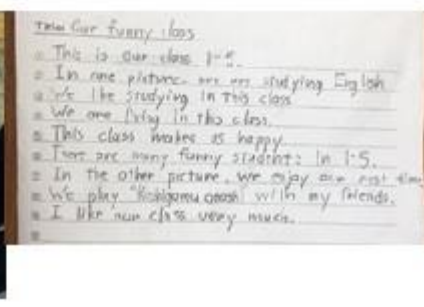 Title Our funny class
This is our class 1-5.
In one picture, we are studying English
We like studying in this class
We are living in this class.
This class makes us happy
There are many funny students in 1-5.
In the other picture, we enjoy our rest time.
We play " " with my friends.
I like our class very much.